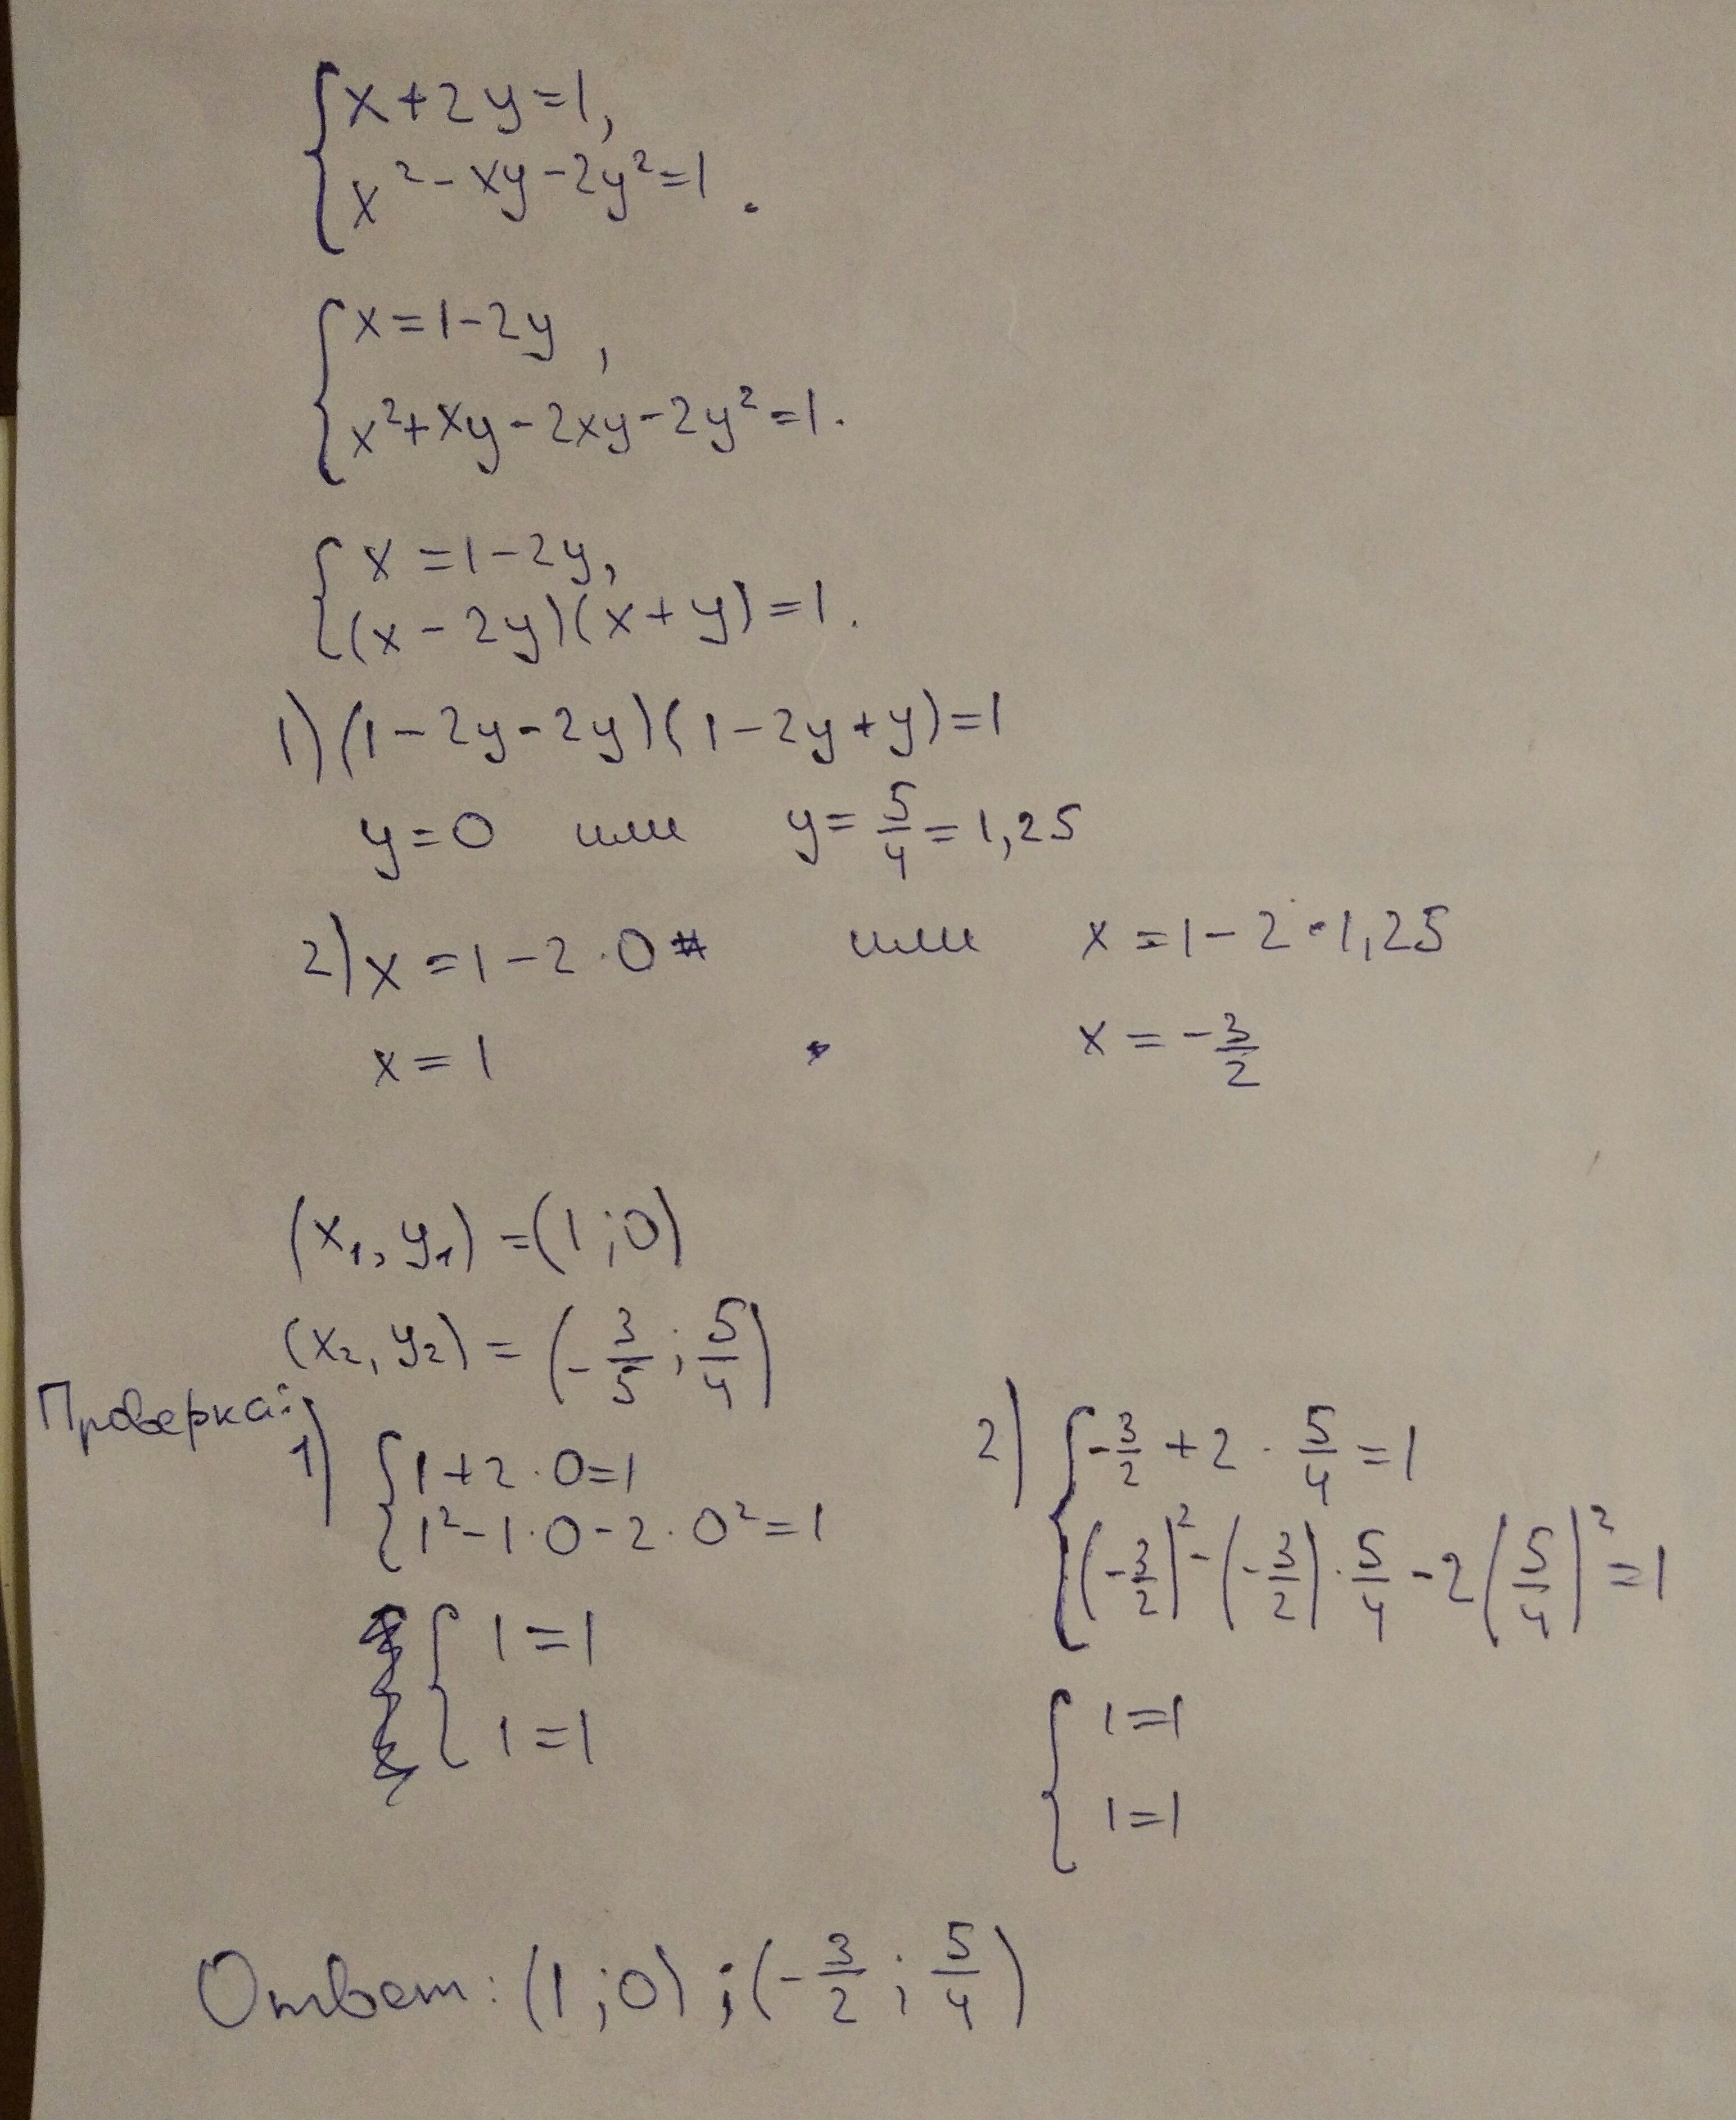 { x + 2y = 1,
x² - xy - 2y² = 1.
{ x = 1 - 2y,
x² + xy - 2xy - 2y² = 1.
{ x = 1 - 2y,
(x - 2y)(x + y) = 1.
1) (1 - 2y - 2y)(1 - 2y + y) = 1
y = 0 или y = 5/4 = 1,25
2) x = 1 - 2 · 0 или x = 1 - 2 · 1,25
x = 1 x = -3/2
(x₁, y₁) = (1; 0)
(x₂, y₂) = (-3/5; 5/4)
Проверка:
1) { 1 + 2 · 0 = 1
1² - 1 · 0 - 2 · 0² = 1
{ 1 = 1
1 = 1
2) { -3/2 + 2 · 5/4 = 1
(-3/2)² - (-3/2) · 5/4 - 2(5/4)² = 1
{ 1 = 1
1 = 1
Ответ: (1; 0); (-3/2; 5/4)